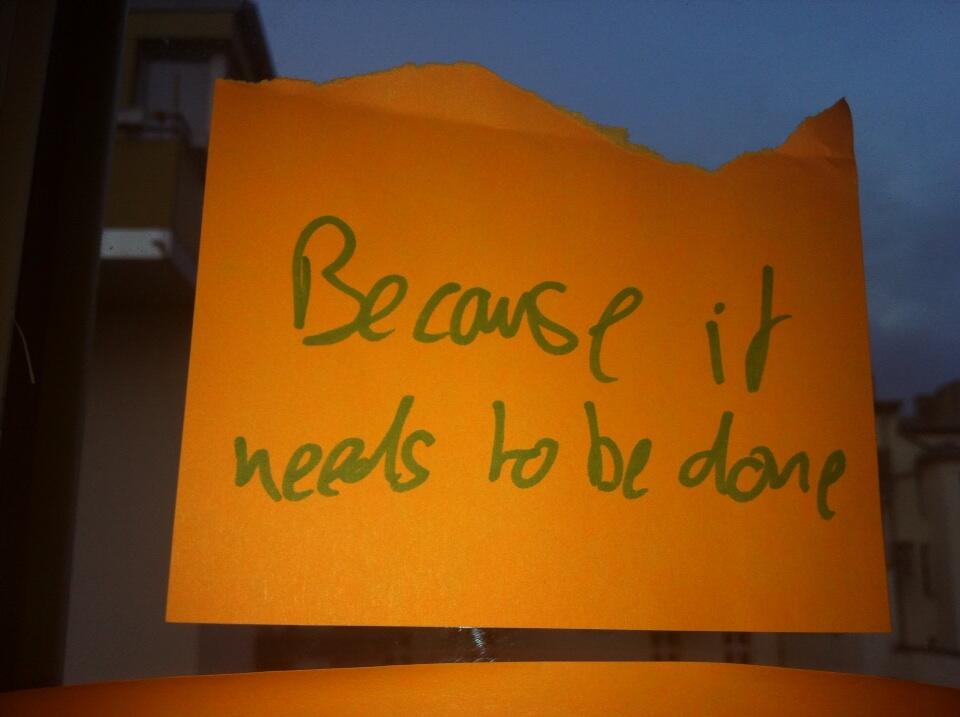 Because it
needs to be done